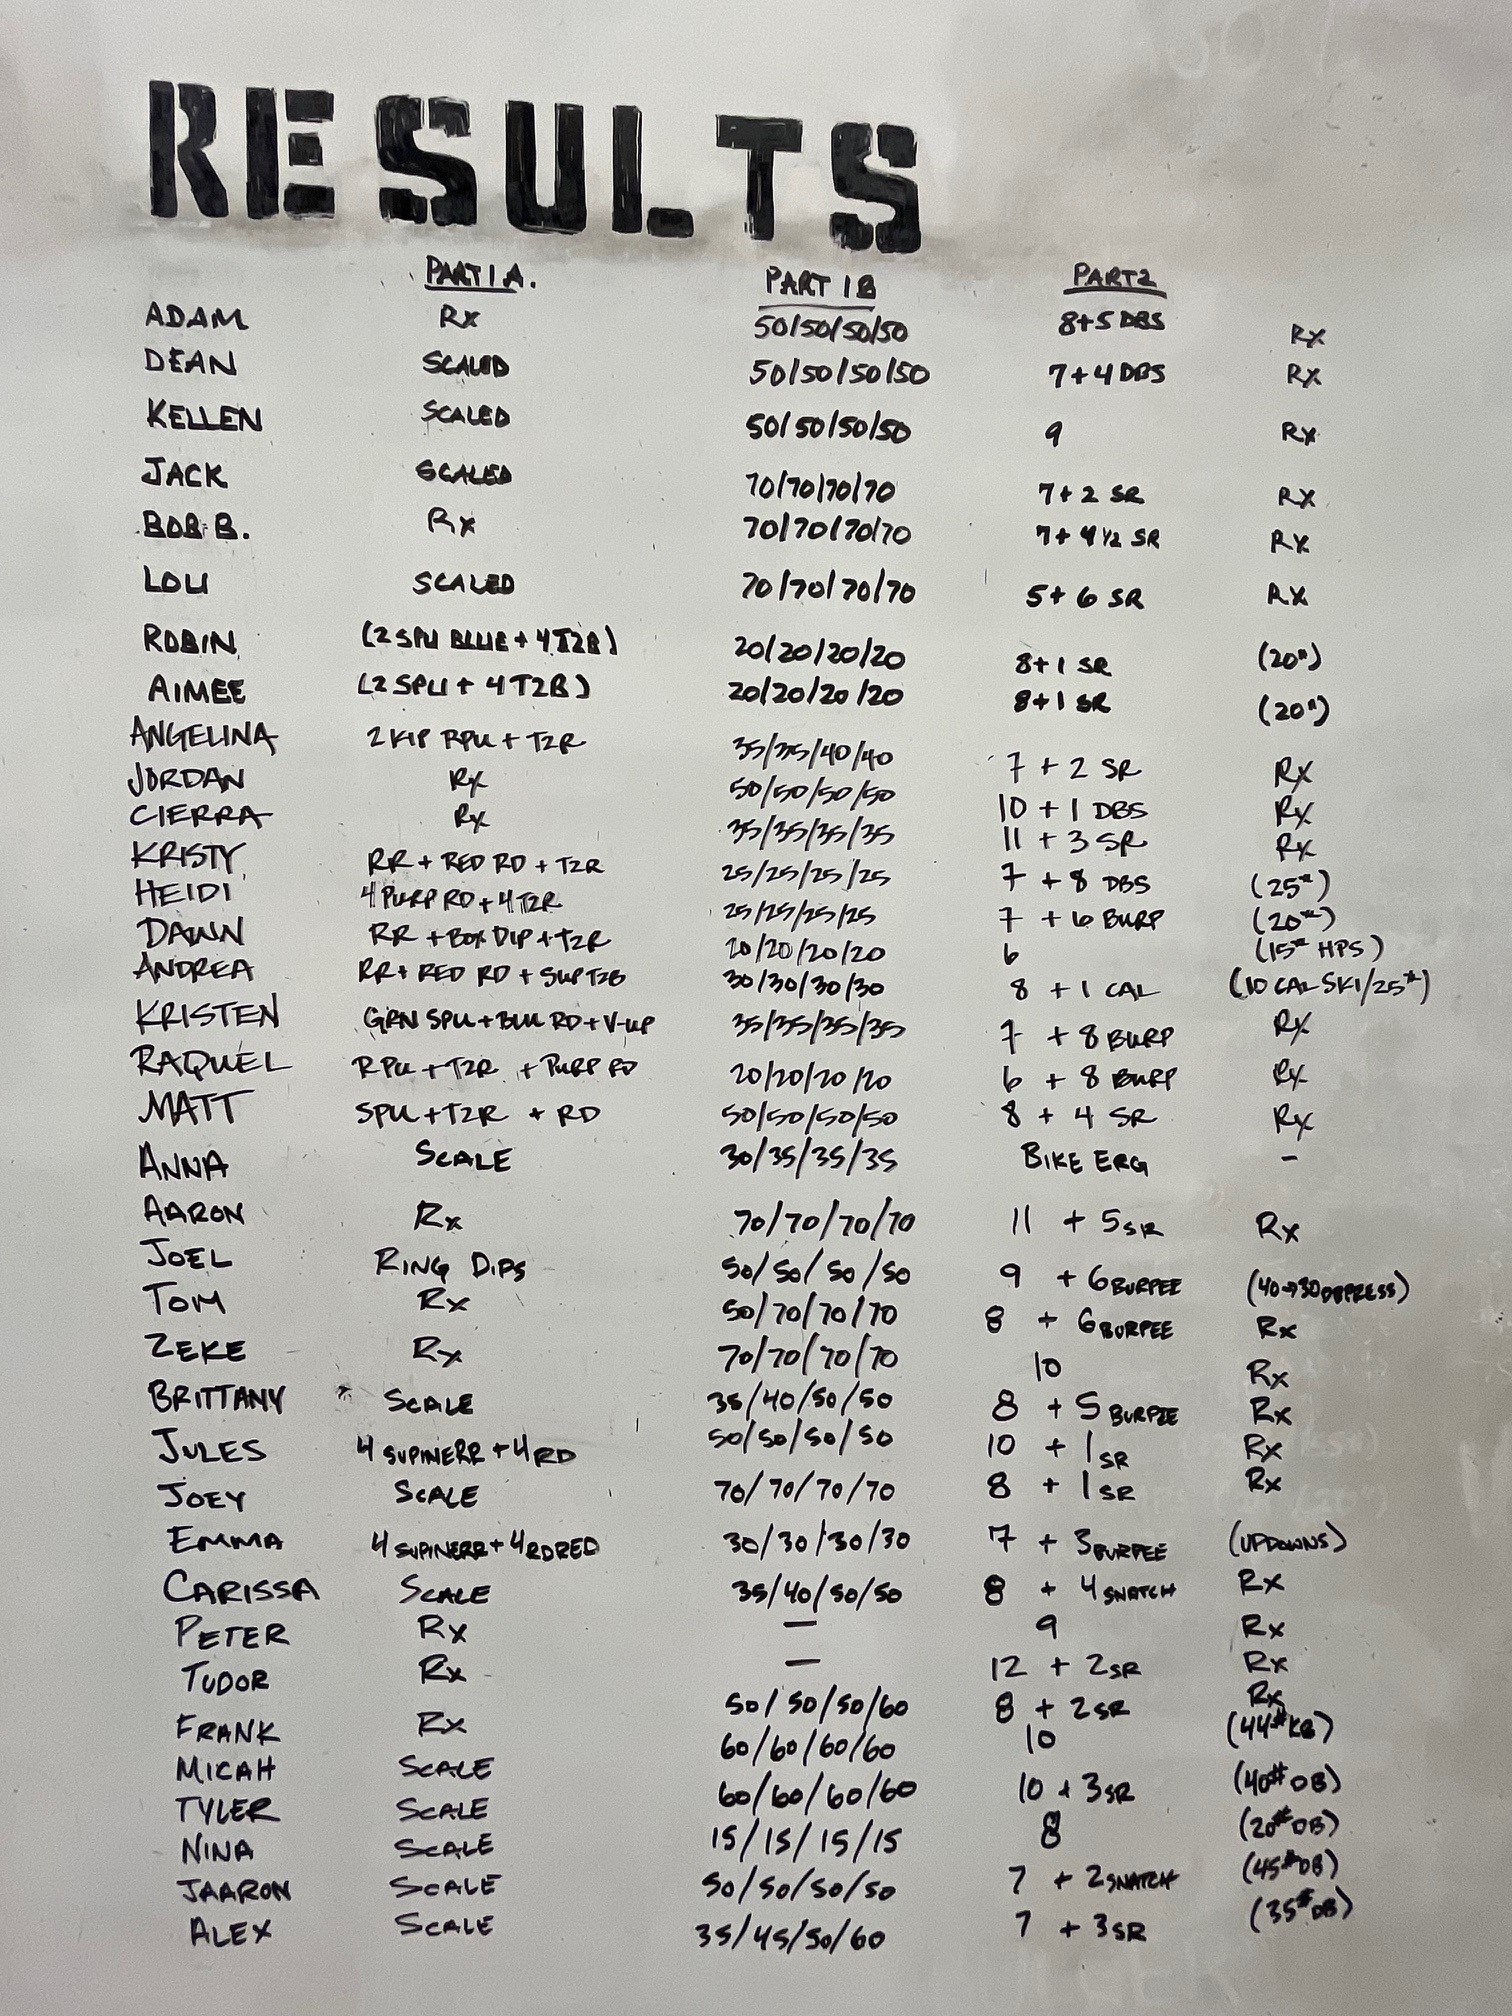 RESULTS
PART 1 A. PART 1B PART 2
ADAM Rx 50/50/50/50 8+5 DBS Rx
DEAN SCALED 50/50/50/50 7+4 DBS Rx
KELLEN SCALED 50/50/50/50 9 Rx
JACK SCALED 70/70/70/70 7+2 SR Rx
BOB B. Rx 70/70/70/70 7+4 1/2 SR Rx
LOU SCALED 70/70/70/70 5+6 SR Rx
ROBIN (2 SPU BLUE + 4 T2B) 20/20/20/20 8+1 SR (20#)
AIMEE (2 SPU + 4 T2B) 20/20/20/20 8+1 SR (20#)
ANGELINA 2 KIP RPU + T2R 35/35/40/40 7 + 2 SR Rx
JORDAN Rx 50/50/50/50 10 + 1 DBS Rx
CIERRA Rx 35/35/35/35 11 + 3 SR Rx
KRISTY RR + RED RD + T2R 25/25/25/25 7 + 8 DBS (25#)
HEIDI 4 PURP RD + 4 T2R 25/25/25/25 7 + 6 BURP (20#)
DAWN RR + BOX DIP + T2R 20/20/20/20 6 (15# HPS)
ANDREA RR + RED RD + SUP T2B 30/30/30/30 8 + 1 CAL (10 CAL SKI/25#)
KRISTEN GRN SPU + BLU RD + V-UP 35/35/35/35 7 + 8 BURP Rx
RAQUEL RPU + T2R + PURP RD 20/20/20/20 6 + 8 BURP Rx
MATT SPU + T2R + RD 50/50/50/50 8 + 4 SR Rx
ANNA SCALE 30/35/35/35 BIKE ERG –
AARON Rx 70/70/70/70 11 + 5 SR Rx
JOEL RING DIPS 50/50/50/50 9 + 6 BURPEE (40→30 DB PRESS)
TOM Rx 50/70/70/70 8 + 6 BURPEE Rx
ZEKE Rx 70/70/70/70 10 Rx
BRITTANY SCALE 35/40/50/50 8 + 5 BURPEE Rx
JULES 4 SUPINE RR + 4 RD 50/50/50/50 10 + 1 SR Rx
JOEY SCALE 70/70/70/70 8 + 1 SR Rx
EMMA 4 SUPINE RR + 4 RD RED 30/30/30/30 7 + 3 BURPEE (UPDOWNS)
CARISSA SCALE 35/40/50/50 8 + 4 SNATCH Rx
PETER Rx — 9 Rx
TUDOR Rx — 12 + 2 SR Rx
FRANK Rx 50/50/50/60 8 + 2 SR Rx
MICAH SCALE 60/60/60/60 10 (44# KB)
TYLER SCALE 60/60/60/60 10 + 3 SR (40# DB)
NINA SCALE 15/15/15/15 8 (20# DB)
JAARON SCALE 50/50/50/50 7 + 2 SNATCH (45# DB)
ALEX SCALE 35/45/50/60 7 + 3 SR (35# DB)